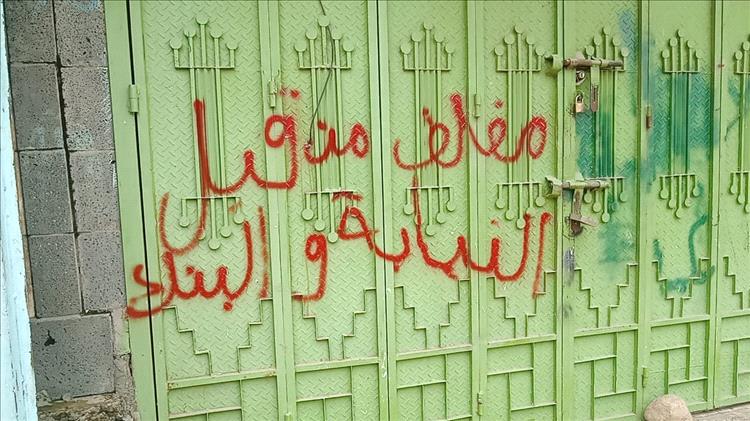 مغلق من قبل
النيابة و البنك